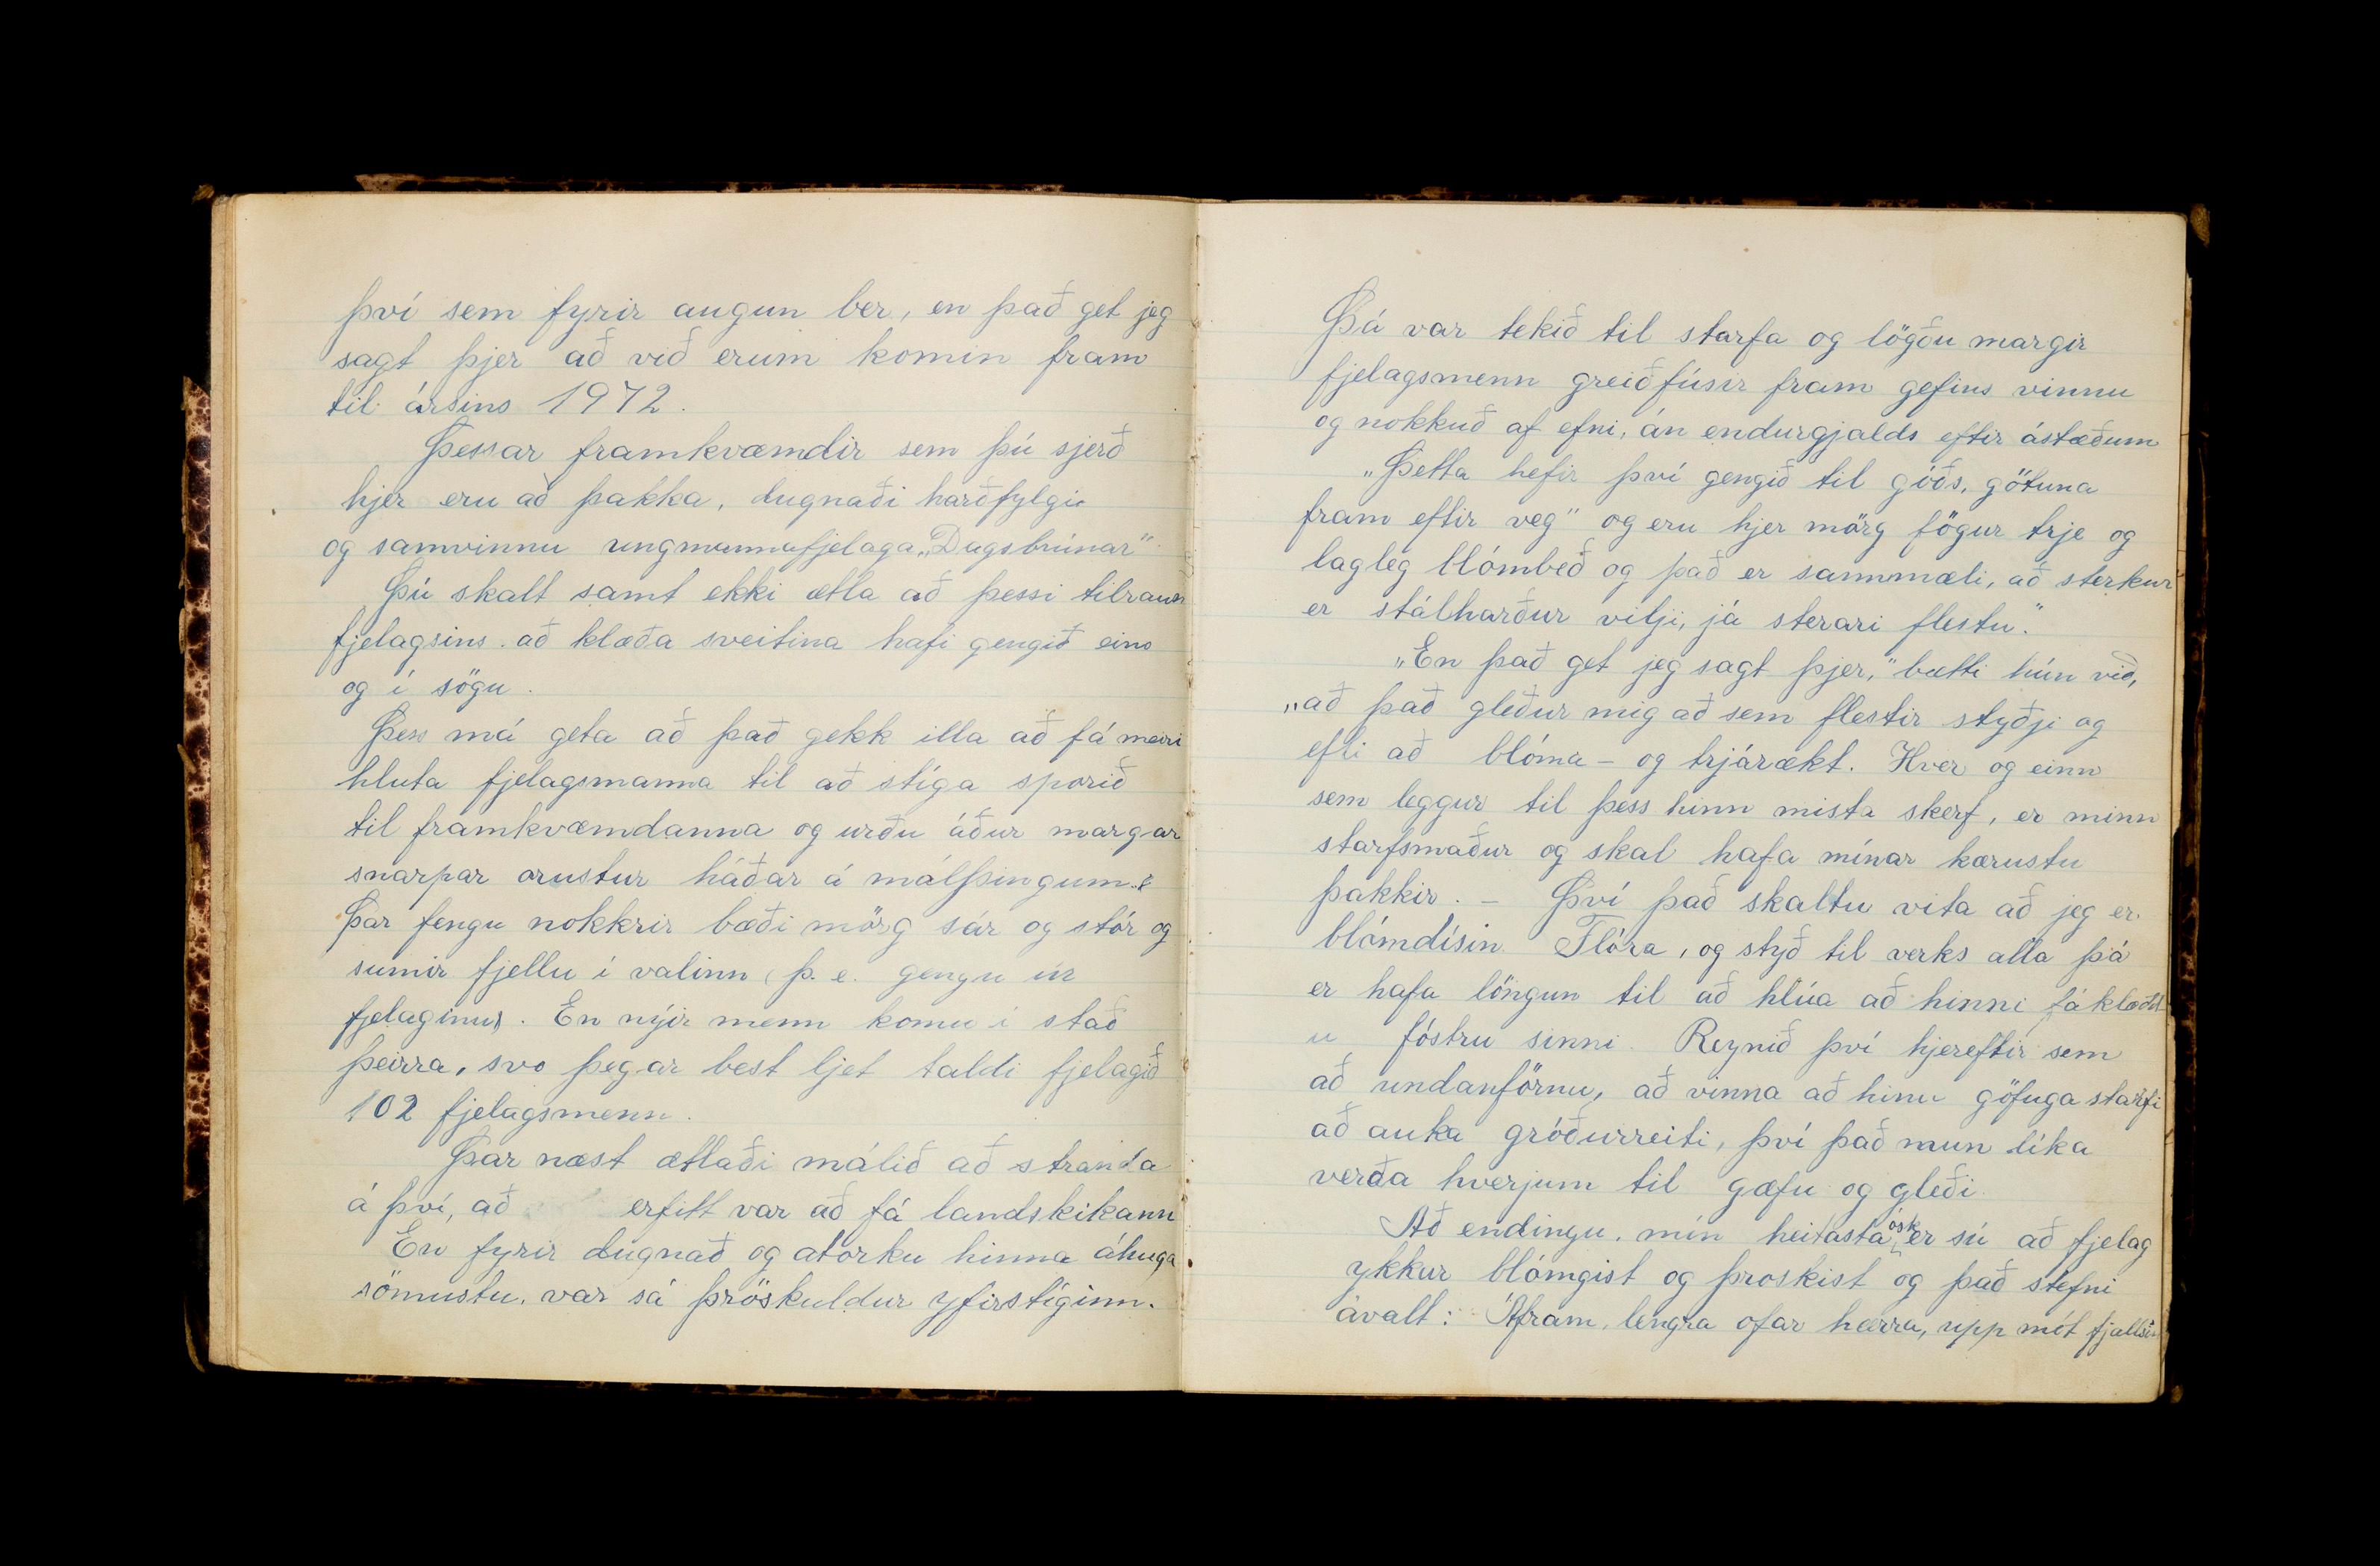 því sem fyrir augun ber, en það get jeg
sagt þjer að við erum komin fram
til ársins 1972.
Þessar framkvæmdir sem þú sjerð
hjer eru að þakka, dugnaði harðfylgi
og samvinnu ungmannafjelaga „Dagsbrúnar"
Þú skalt samt ekki ætla að þessi tilraun
fjelagsins að klæða sveitina hafi gengið eins
og í sögu.
Þess má geta að það gekk illa að fá meiri
hluta fjelagsmanna til að stíga sporið
til framkvæmdanna og urðu áður margar
snarpar orustur háðar á málþingum.
Þar fengu nokkrir bæði mörg sár og stór og
sumir fjellu í valinn (þ.e. gengu úr
fjelaginu). En nýir menn komu í stað
þeirra, svo þegar best ljet taldi fjelagið
102 fjelagsmenn.
Þar næst ætlaði málið að stranda
á því, að erfitt var að fá landskikann
En fyrir dugnað og atorku hinna áhuga
sömustu, var sá þröskuldur yfirstíginn.
Þá var tekið til starfa og lögðu margir
fjelagsmenn greiðfúsir fram gefins vinnu
og nokkuð af efni, án endurgjalds eftir ástæðum
„Þetta hefir því gengið til góðs, götuna
fram eftir veg" og eru hjer mörg fögur trje og
lagleg blómbeð og það er sammæli, að sterkur
er stálharður vilji, já sterari flestu."
„En það get jeg sagt þjer," bætti hún við,
„að það gleður mig að sem flestir styðji og
efli að blóma- og trjárækt. Hver og einn
sem leggur til þess hinn mista skerf, er minn
starfsmaður og skal hafa mínar kærustu
þakkir. - Því það skaltu vita að jeg er
blómdísin Flóra, og styð til verks alla þá
er hafa löngun til að hlúa að hinni fáklædd
u fóstru sinni. Reynið því hjereftir sem
að undanförnu, að vinna að hinu göfuga starfi
að auka gróðurreiti, því það mun líka
verða hverjum til gæfu og gleði
Að endingu, mín heitasta ósk er sú að fjelag
ykkur blómgist og þroskist og það stefni
ávalt: Áfram, lengra ofar hærra, upp mót fjallsin